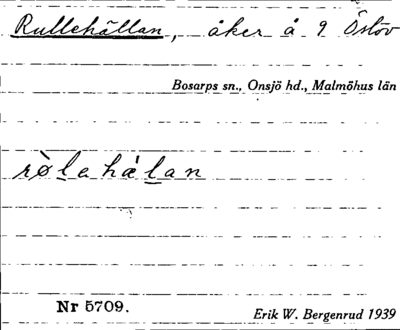 Rullehällan, åker å 9 Östöv
Bosarps sn., Onsjö hd., Malmöhus län
rølahälan
Nr 5709.
Erik W. Bergenrud 1939